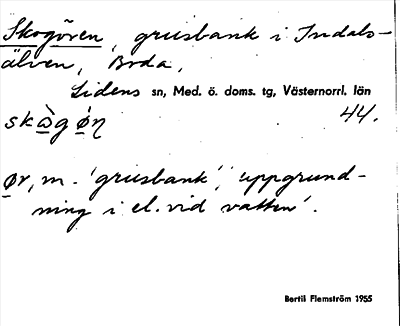 Skogören, grusbank i Indals-
älven, Boda,
Lidens sn, Med. ö. doms. tg, Västernorrl. län
skɷ̀gǿŋ 44.
ør, m. 'grusbank', 'uppgrund-
ning i el. vid vatten'.
Bertil Flemström 1955